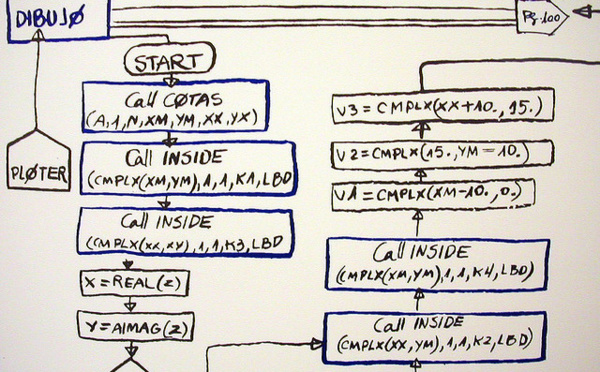 DIBUJØ
PLØTER
Pg.100
START
Call CØTAS
(A,1,N,XM,YM,XX,YX)
Call INSIDE
(CMPLX(XM,YM),1,1,K1,LBD
Call INSIDE
(CMPLX(XX,XY),1,1,K3,LBD
X=REAL(Z)
Y=AIMAG(Z)
V3=CMPLX(XX+10.,15.)
V2=CMPLX(15.,YM-10.)
V1=CMPLX(XM-10.,0.)
Call INSIDE
(CMPLX(XM,YM),1,1,K4,LBD)
Call INSIDE
(CMPLX(XX,YM),1,1,K2,LBD)